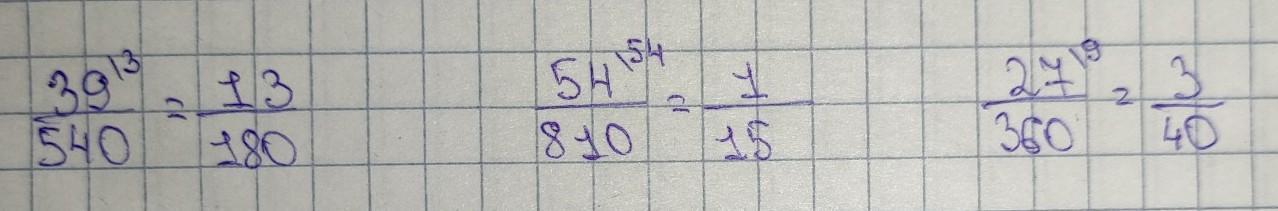 39\3 / 540 = 13 / 180    54\54 / 810 = 1 / 15    27\9 / 360 = 3 / 40